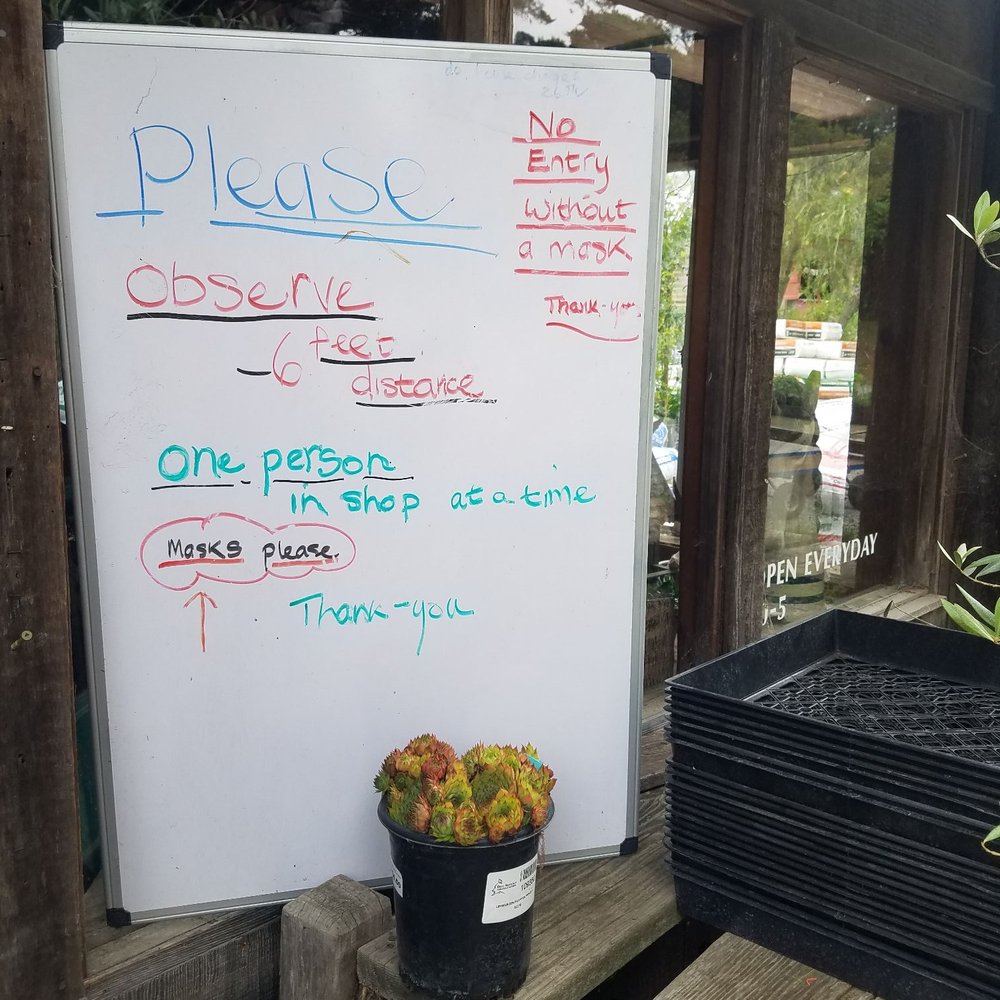 Please
Observe
- 6 feet
distance
One person
in shop at a time
Masks please.
Thank-you
No
Entry
without
a mask
Thank-you
PEN EVERYDAY
-5